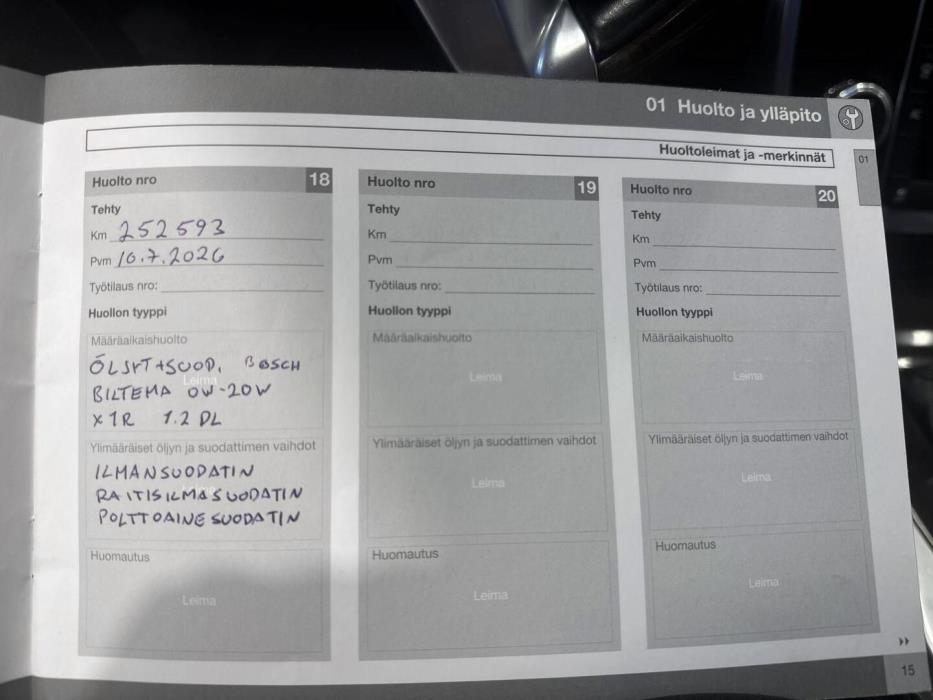 01 Huolto ja ylläpito
Huoltoleimat ja -merkinnät
01
Huolto nro 18
Tehty
Km 252593
Pvm 10.7.2026
Työtilaus nro:
Huollon tyyppi
Määräaikaishuolto
ÖLJYT+SUOD. BOSCH
Leima
BILTEMA 0W-20W
X1R 1.2 DL
Ylimääräiset öljyn ja suodattimen vaihdot
ILMANSUODATIN
RAITISILMASUODATIN
POLTTOAINESUODATIN
Huomautus
Leima
Huolto nro 19
Tehty
Km
Pvm
Työtilaus nro:
Huollon tyyppi
Määräaikaishuolto
Leima
Ylimääräiset öljyn ja suodattimen vaihdot
Leima
Huomautus
Leima
Huolto nro 20
Tehty
Km
Pvm
Työtilaus nro:
Huollon tyyppi
Määräaikaishuolto
Leima
Ylimääräiset öljyn ja suodattimen vaihdot
Leima
Huomautus
Leima
15